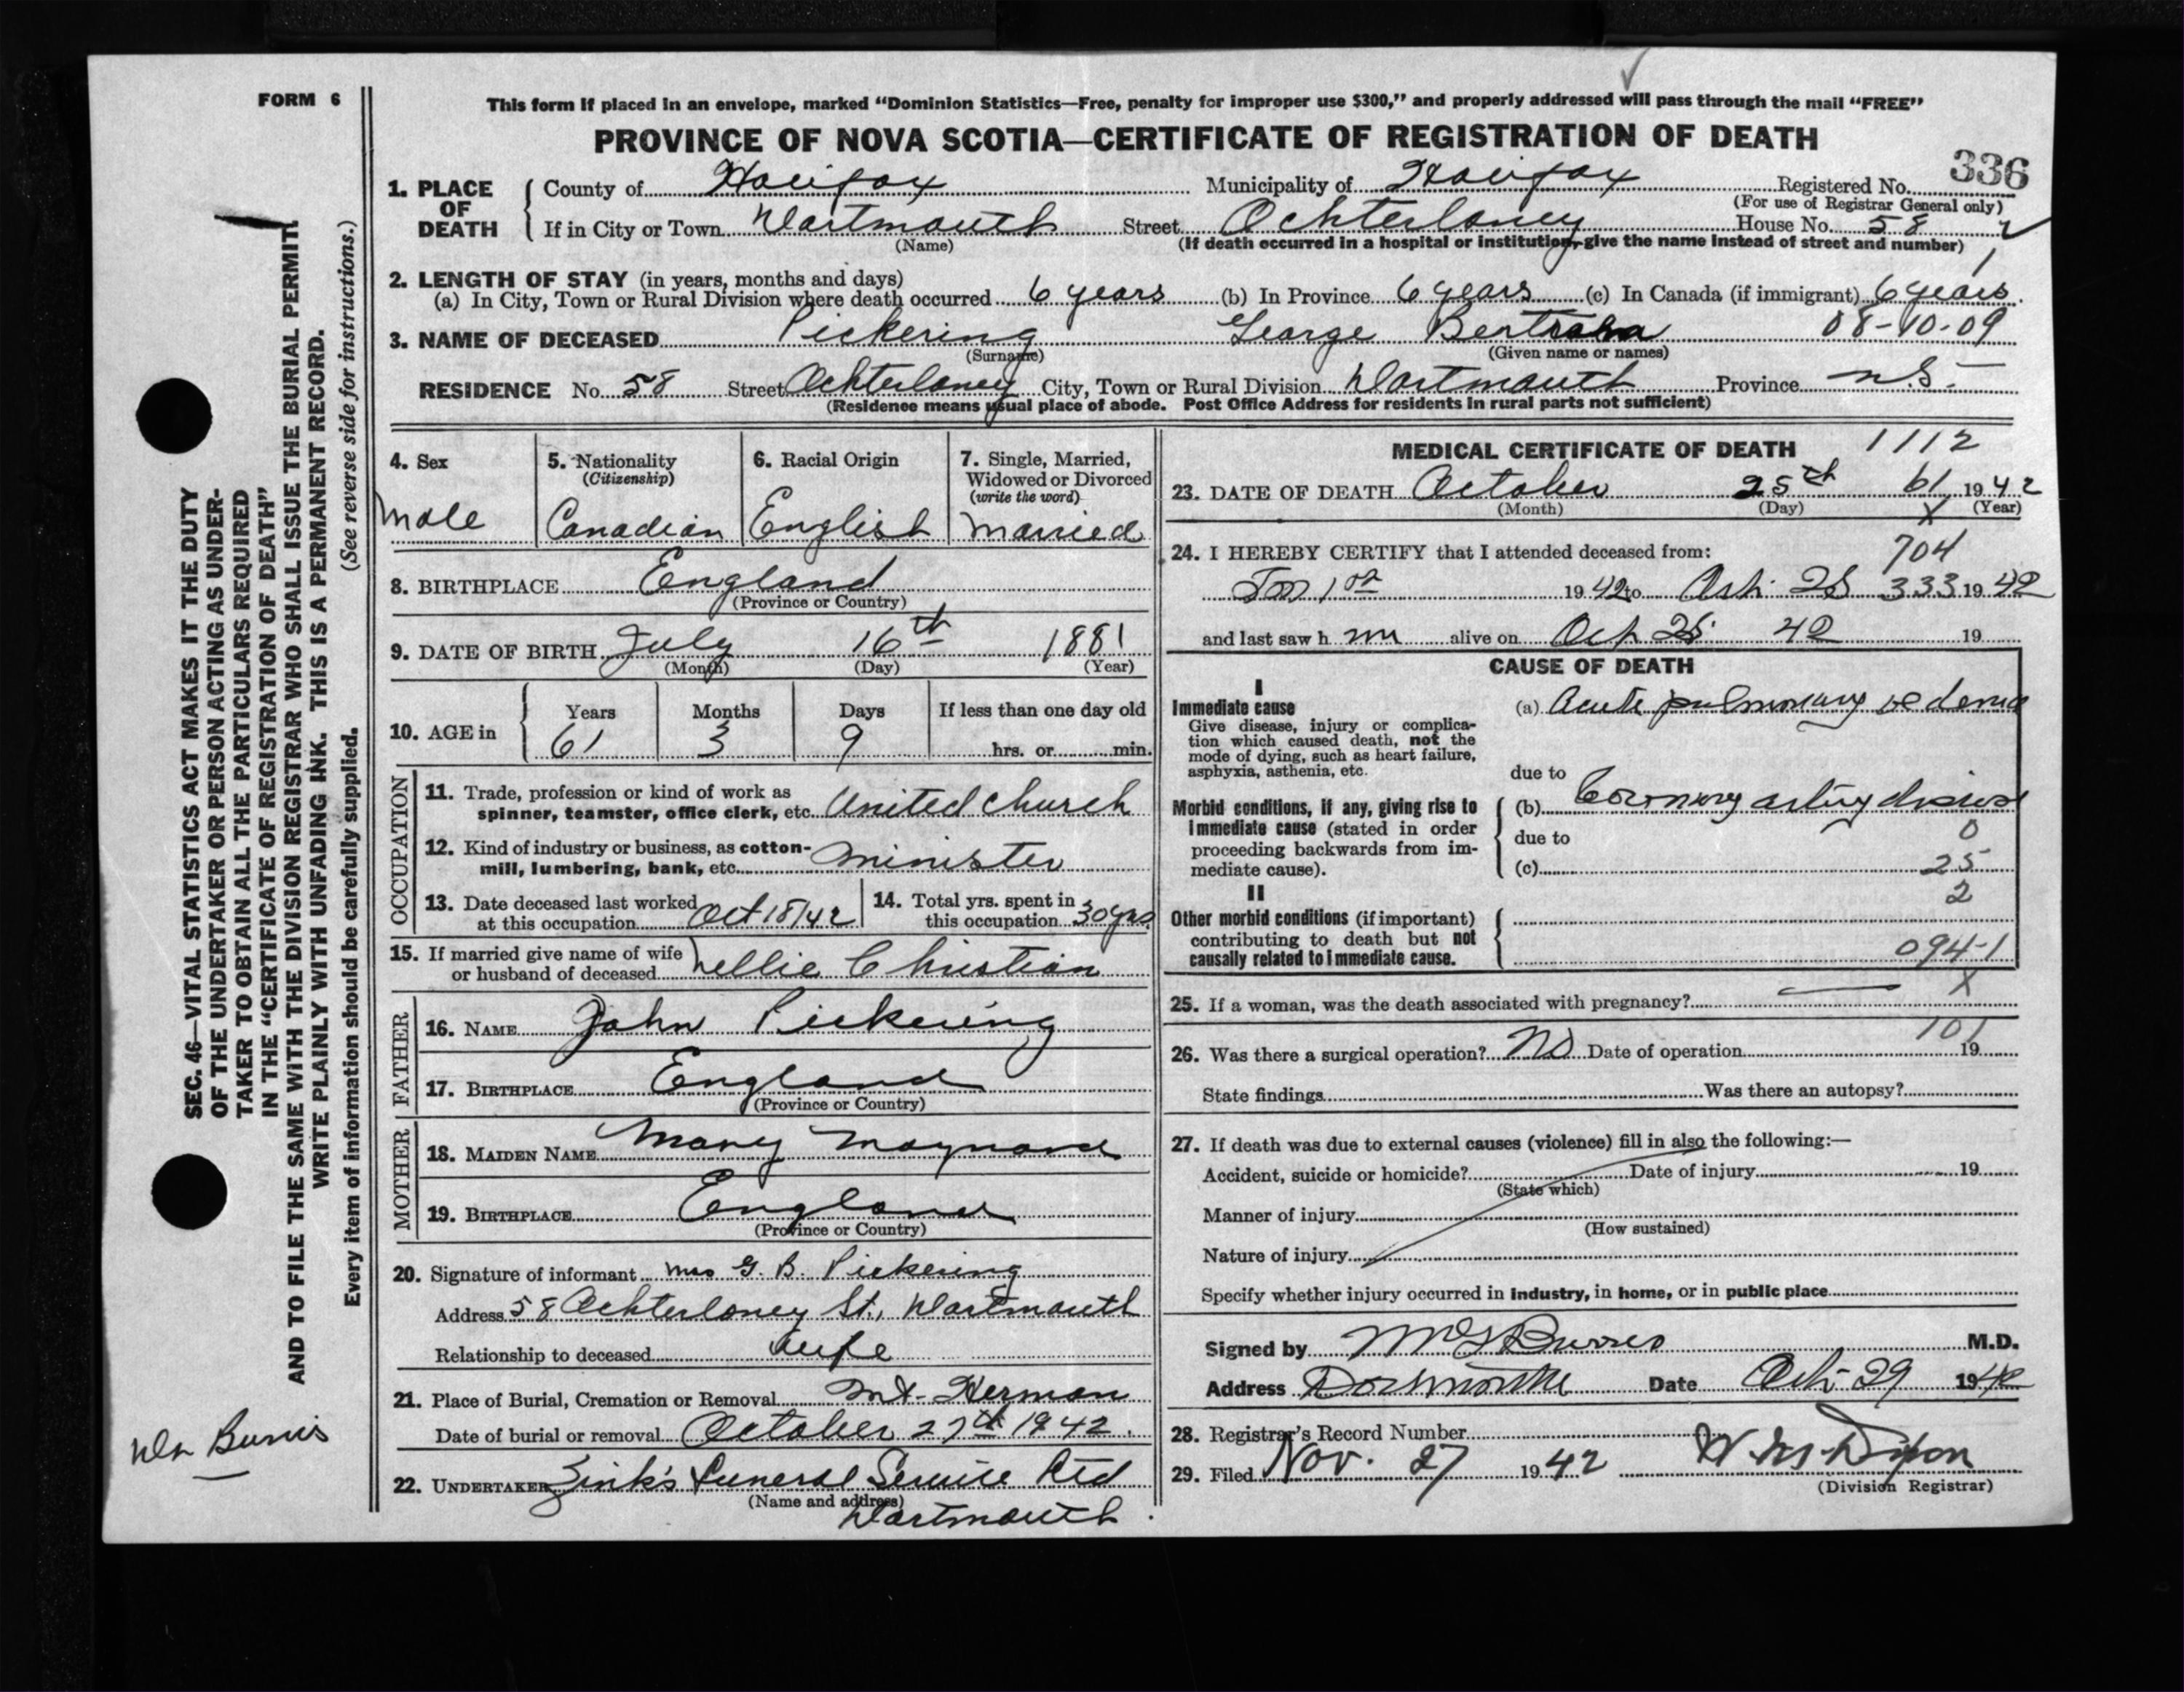 FORM 6
This form if placed in an envelope, marked “Dominion Statistics—Free, penalty for improper use $300,” and properly addressed will pass through the mail “FREE”
PROVINCE OF NOVA SCOTIA—CERTIFICATE OF REGISTRATION OF DEATH
336
1. PLACE OF DEATH
County of Halifax Municipality of Halifax Registered No.
(For use of Registrar General only)
If in City or Town Dartmouth Street Ochterloney House No. 58
(Name) (If death occurred in a hospital or institution, give the name instead of street and number)
2. LENGTH OF STAY (in years, months and days)
(a) In City, Town or Rural Division where death occurred 6 years (b) In Province 6 years (c) In Canada (if immigrant) 6 years
3. NAME OF DECEASED Pickering George Bertram 08-10-09
(Surname) (Given name or names)
RESIDENCE No. 58 Street Ochterloney City, Town or Rural Division Dartmouth Province N.S.
(Residence means usual place of abode. Post Office Address for residents in rural parts not sufficient)
4. Sex
Male
5. Nationality
(Citizenship)
Canadian
6. Racial Origin
English
7. Single, Married,
Widowed or Divorced
(write the word)
Married
8. BIRTHPLACE England
(Province or Country)
9. DATE OF BIRTH July 16th 1881
(Month) (Day) (Year)
10. AGE in
Years Months Days If less than one day old
61 3 9 hrs. or min.
OCCUPATION
11. Trade, profession or kind of work as
spinner, teamster, office clerk, etc. United Church
12. Kind of industry or business, as cotton-
mill, lumbering, bank, etc. Minister
13. Date deceased last worked
at this occupation Oct 18/42
14. Total yrs. spent in
this occupation 30 yrs
15. If married give name of wife
or husband of deceased Nellie Christian
FATHER
16. NAME John Pickering
17. BIRTHPLACE England
(Province or Country)
MOTHER
18. MAIDEN NAME Mary Maynard
19. BIRTHPLACE England
(Province or Country)
20. Signature of informant Mrs G. B. Pickering
Address 58 Ochterloney St., Dartmouth
Relationship to deceased Wife
21. Place of Burial, Cremation or Removal Mt. Herman
Date of burial or removal October 27th 1942.
22. UNDERTAKER Zink's Funeral Service Ltd
(Name and address)
Dartmouth.
MEDICAL CERTIFICATE OF DEATH 1112
23. DATE OF DEATH October 25th 61 1942
(Month) (Day) X (Year)
24. I HEREBY CERTIFY that I attended deceased from:
704
1942 to Oct. 25 333 1942
and last saw h im alive on Oct 25 42 19
CAUSE OF DEATH
I
Immediate cause
Give disease, injury or complica-
tion which caused death, not the
mode of dying, such as heart failure,
asphyxia, asthenia, etc.
(a) Acute pulmonary oedema
due to
Morbid conditions, if any, giving rise to
immediate cause (stated in order
proceeding backwards from im-
mediate cause).
(b) Coronary artery disease
due to 0
(c) 25
2
II
Other morbid conditions (if important)
contributing to death but not
causally related to immediate cause.
094-1
25. If a woman, was the death associated with pregnancy? — X
101
26. Was there a surgical operation? No Date of operation 19
State findings Was there an autopsy?
27. If death was due to external causes (violence) fill in also the following:—
Accident, suicide or homicide? Date of injury 19
(State which)
Manner of injury
(How sustained)
Nature of injury
Specify whether injury occurred in industry, in home, or in public place
Signed by M G Burris M.D.
Address Dartmouth Date Oct. 29 1942
28. Registrar's Record Number
29. Filed Nov. 27 1942
(Division Registrar)
SEC. 46—VITAL STATISTICS ACT MAKES IT THE DUTY
OF THE UNDERTAKER OR PERSON ACTING AS UNDER-
TAKER TO OBTAIN ALL THE PARTICULARS REQUIRED
IN THE “CERTIFICATE OF REGISTRATION OF DEATH”
AND TO FILE THE SAME WITH THE DIVISION REGISTRAR WHO SHALL ISSUE THE BURIAL PERMIT.
WRITE PLAINLY WITH UNFADING INK. THIS IS A PERMANENT RECORD.
(See reverse side for instructions.)
Every item of information should be carefully supplied.
Burris